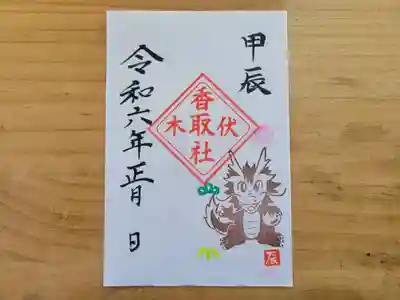 甲辰
伏木
香取社
令和六年正月 日
辰